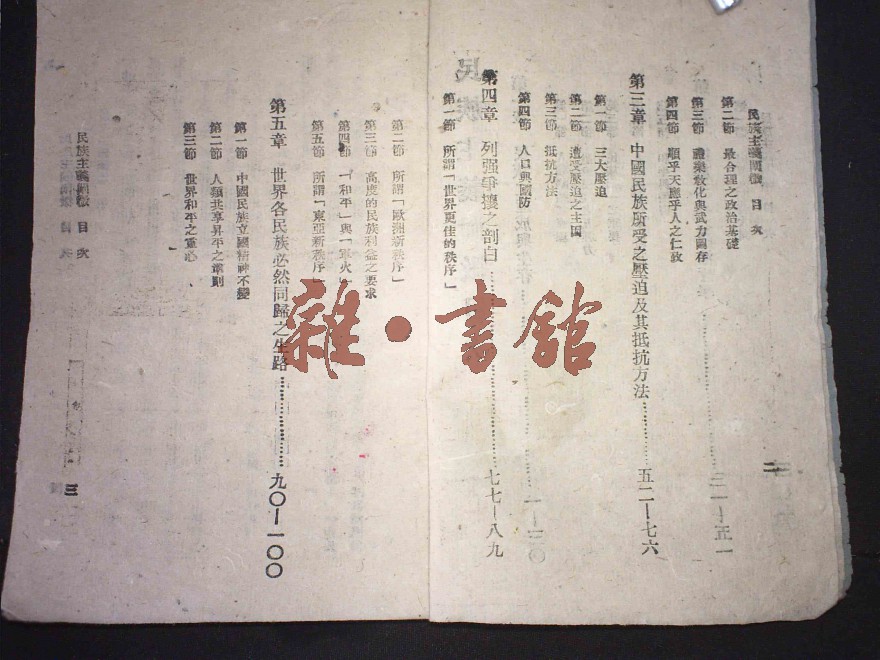 民族主義闡微 目次
二
第二節 最合理之政治基礎
第三節 禮樂敎化與武力圖存
第四節 順乎天應乎人之仁政
第三章 中國民族所受之壓迫及其抵抗方法……………五二—七六
第一節 三大壓迫
第二節 遭受壓迫之主因
第三節 抵抗方法
第四節 人口與國防
第四章 列强爭攘之剖白……………七七—八九
第一節 所謂「世界更佳的秩序」
第二節 所謂「歐洲新秩序」
第三節 高度的民族利益之要求
第四節 「和平」與「軍火」
第五節 所謂「東亞新秩序」
第五章 世界各民族必然同歸之生路……………九〇—一〇〇
第一節 中國民族立國精神不變
第二節 人類共享昇平之準則
第三節 世界和平之重心
民族主義闡微 目次
三
雜·書館